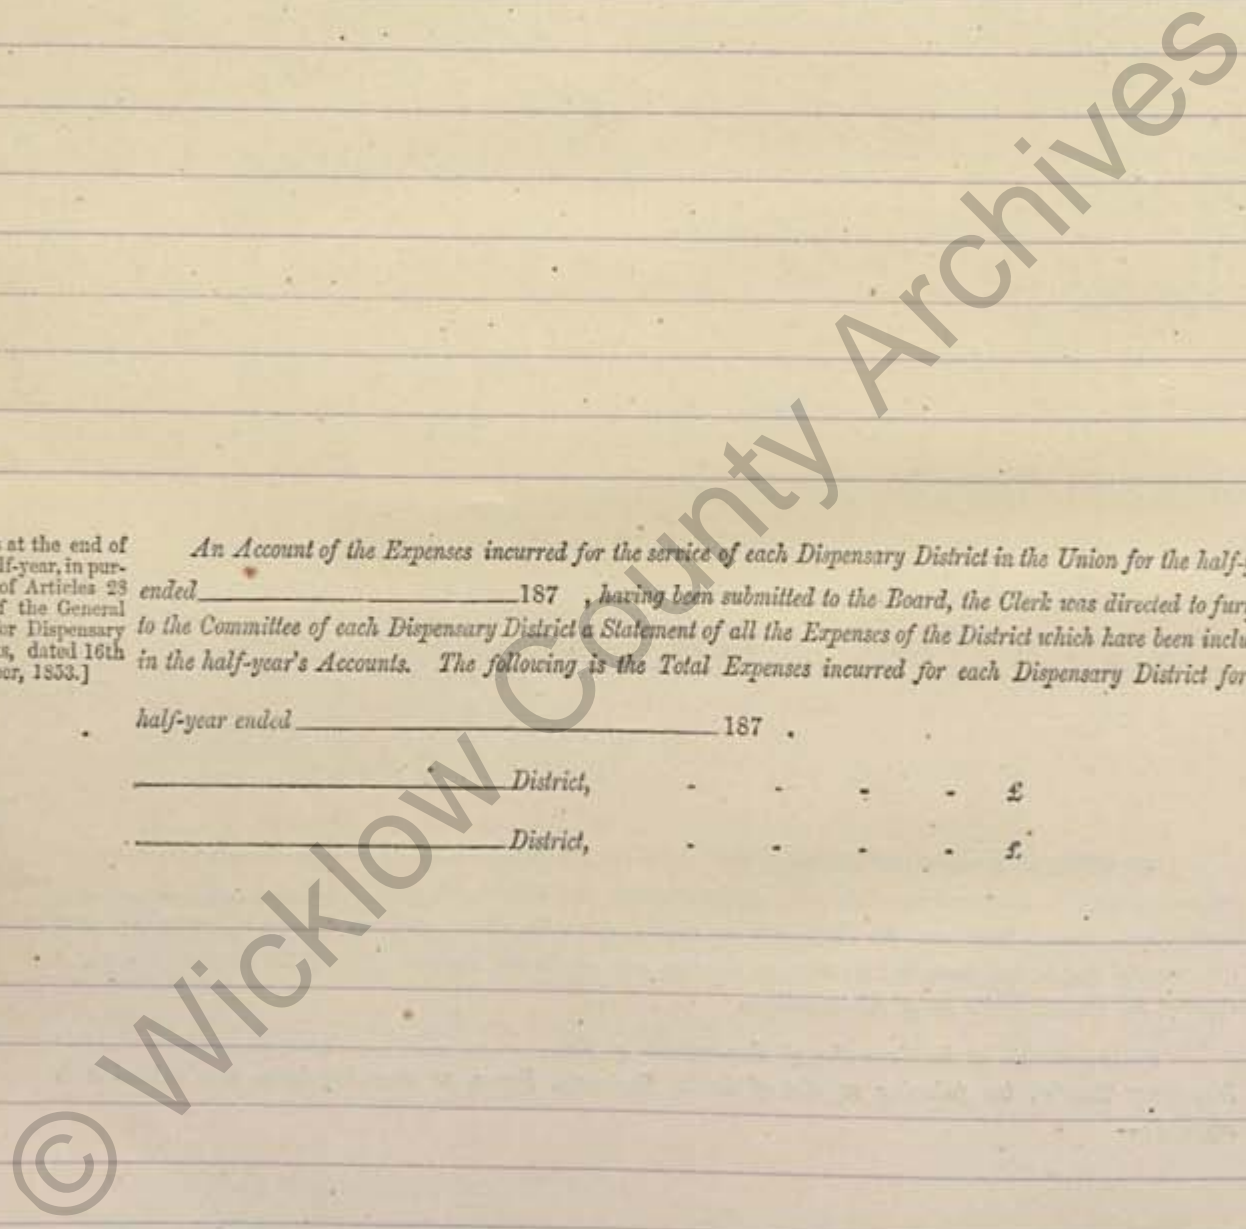 at the end of
lf-year, in pur-
of Articles 28
f the General
or Dispensary
s, dated 16th
ber, 1853.]
An Account of the Expenses incurred for the service of each Dispensary District in the Union for the half-y
ended 187 , having been submitted to the Board, the Clerk was directed to furn
to the Committee of each Dispensary District a Statement of all the Expenses of the District which have been inclu
in the half-year's Accounts. The following is the Total Expenses incurred for each Dispensary District for
half-year ended 187 .
District, - - - - £
District, - - - - £
© Wicklow County Archives